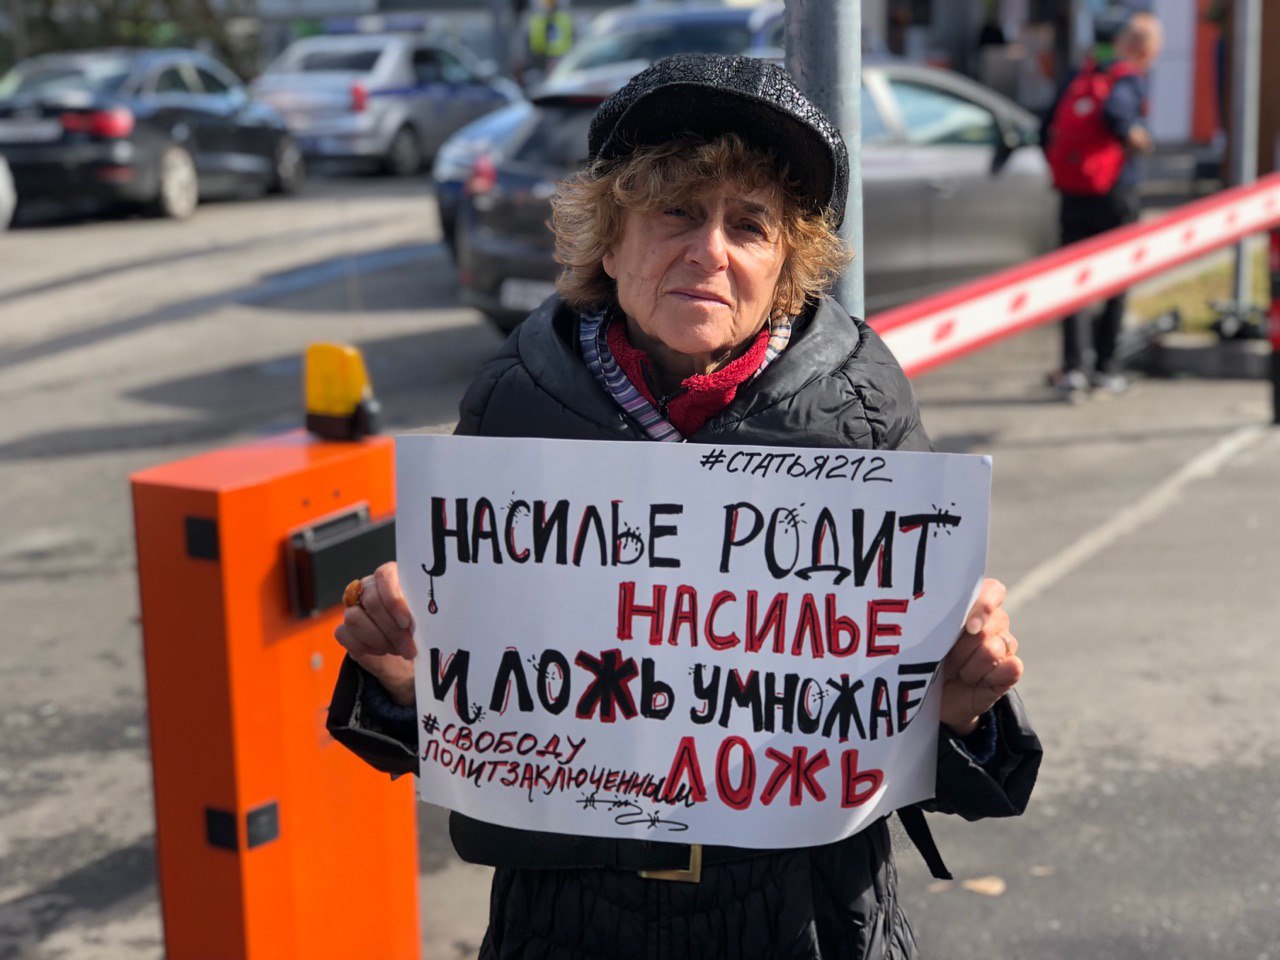 #СТАТЬЯ212
НАСИЛЬЕ РОДИТ
НАСИЛЬЕ
И ЛОЖЬ УМНОЖАЕТ
ЛОЖЬ
#СВОБОДУ
ПОЛИТЗАКЛЮЧЕННЫМ